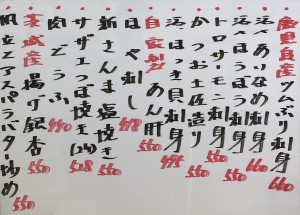 鹿児島産 ツムぶり刺身 660
活〆ありなめ刺身 660
活〆つぶ刺身 550
トロサーモン刺身 550
かつお土佐造り 550
活〆ほっき貝刺身 495
自家製 あん肝 550
ほや刺し 418
新さんま塩焼き 550
サザエつぼ焼き(2ケ) 528
肉どうふ 440
茨城産 揚げ銀杏 550
帆立とアスパラバター炒め 550